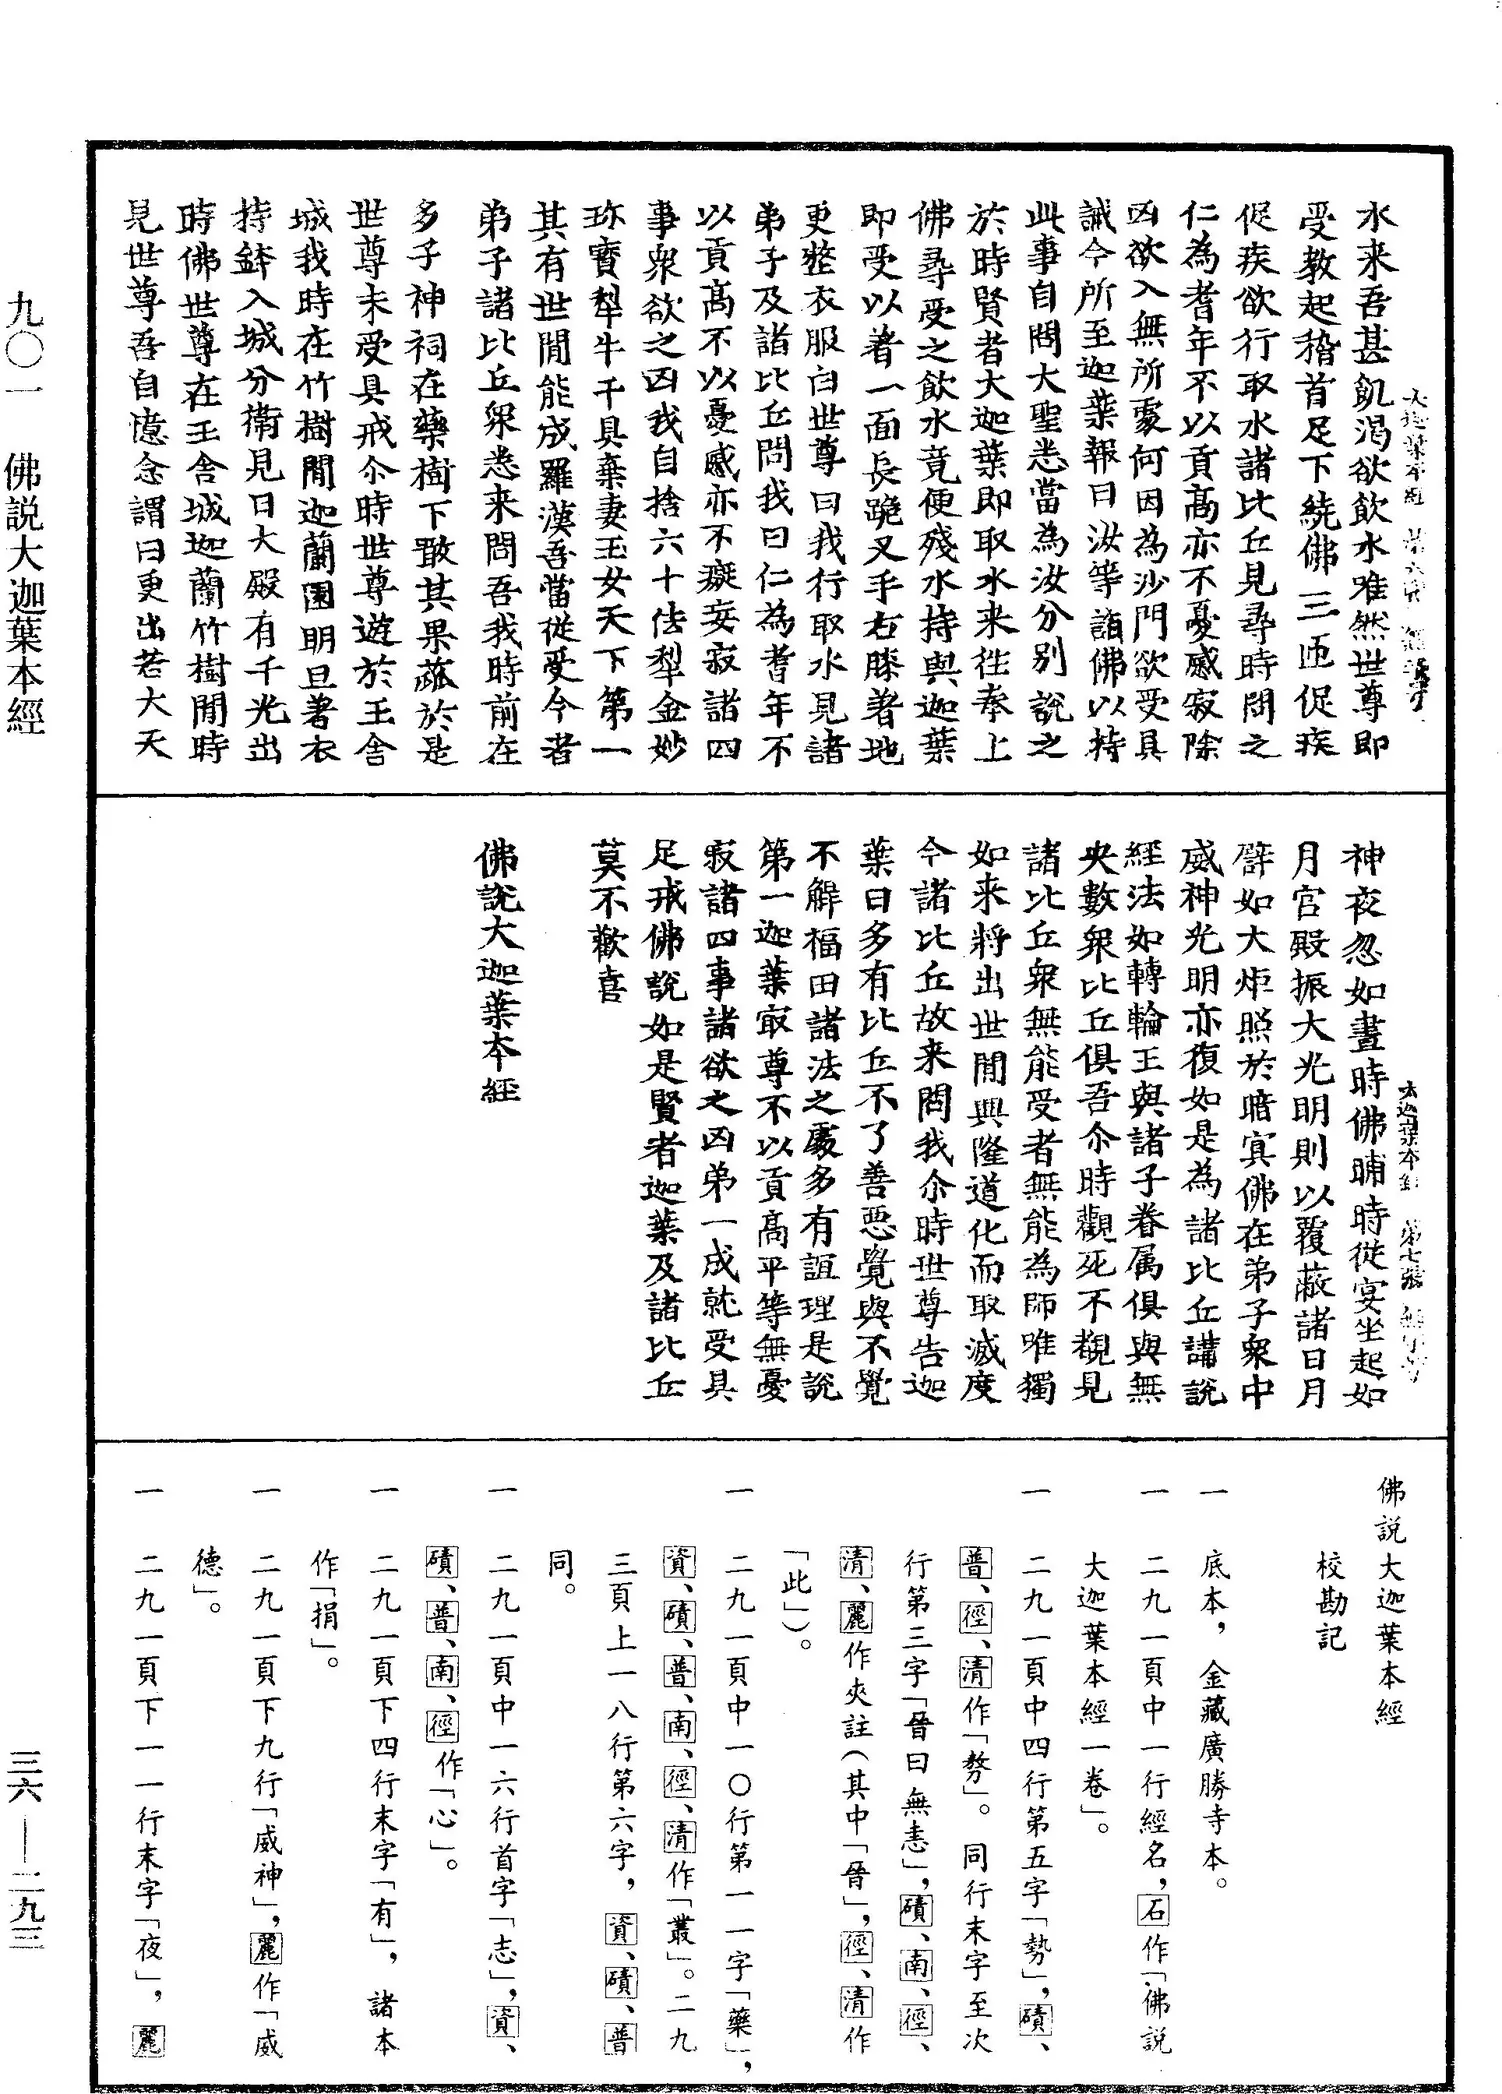 水来吾甚飢渴欲飲水唯然世尊即
受教起稽首足下繞佛三帀促疾
促疾欲行取水諸比丘見尋時問之
仁為耆年不以貢高亦不憂慼寂除
凶欲入無所處何因為沙門欲受具
誡今所至迦葉報曰汝等詣佛以持
此事自問大聖悉當為汝分別說之
於時賢者大迦葉即取水来往奉上
佛尋受之飲水竟便殘水持與迦葉
即受以著一面長跪叉手右膝著地
更整衣服白世尊曰我行取水見諸
弟子及諸比丘問我曰仁為耆年不
以貢高不以憂慼亦不癡妄寂諸四
事衆欲之凶我自捨六十億犁金妙
珎寶犁牛千具棄妻玉女天下第一
其有世間能成羅漢吾當從受今者
弟子諸比丘衆悉来問吾我時前在
多子神祠在藥樹下噉其果蓏於是
世尊未受具戒尒時世尊遊於王舍
城我時在竹樹間迦蘭園明旦著衣
持鉢入城分衛見日大殿有千光出
時佛世尊在王舍城迦蘭竹樹間時
見世尊吾自憶念謂曰更出若大天
大迦葉本經 第六張
神夜忽如晝時佛晡時從宴坐起如
月宮殿振大光明則以覆蔽諸日月
譬如大炬照於暗冥佛在弟子衆中
威神光明亦復如是為諸比丘講說
經法如轉輪王與諸子眷属俱與無
央數衆比丘俱吾尒時觀死不覩見
諸比丘衆無能受者無能為師唯獨
如来將出世間興隆道化而取滅度
今諸比丘故来問我尒時世尊告迦
葉曰多有比丘不了善惡覺與不覺
不解福田諸法之處多有誼理是說
第一迦葉㝡尊不以貢高平等無憂
寂諸四事諸欲之凶弟一成就受具
足戒佛說如是賢者迦葉及諸比丘
莫不歡喜
佛說大迦葉本經
大迦葉本經 第七張
佛説大迦葉本經
校勘記
一 底本，金藏廣勝寺本。
一 二九一頁中一行經名，石作「佛説
大迦葉本經一卷」。
一 二九一頁中四行第五字「勢」，磧、
普、徑、清作「㔟」。同行末字至次
行第三字「晉曰無恚」，磧、南、徑、
清、麗作夾註（其中「晉」，徑、清作
「此」）。
一 二九一頁中一〇行第一一字「藥」，
資、磧、普、南、徑、清作「叢」。二九
三頁上一八行第六字，資、磧、普
同。
一 二九一頁中一六行首字「志」，資、
磧、普、南、徑作「心」。
一 二九一頁下四行末字「有」，諸本
作「捐」。
一 二九一頁下九行「威神」，麗作「威
德」。
一 二九一頁下一一行末字「夜」，麗
九〇一 佛説大迦葉本經
三六——二九三